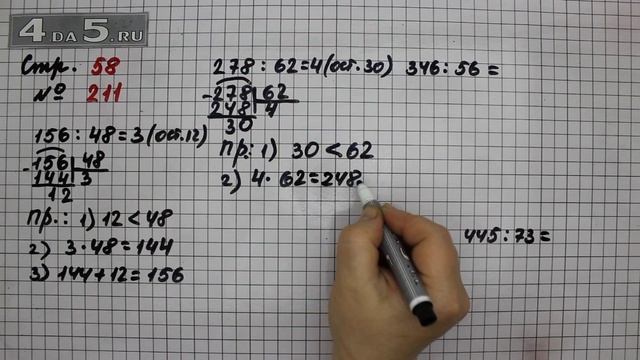 4DA5.RU
Стр. 58
№ 211
156 : 48 = 3 (ост. 12)
- 156 | 48
144 | 3
12
Пр.: 1) 12 < 48
2) 3 · 48 = 144
3) 144 + 12 = 156
278 : 62 = 4 (ост. 30)
- 278 | 62
248 | 4
30
Пр.: 1) 30 < 62
2) 4 · 62 = 248
346 : 56 =
445 : 73 =